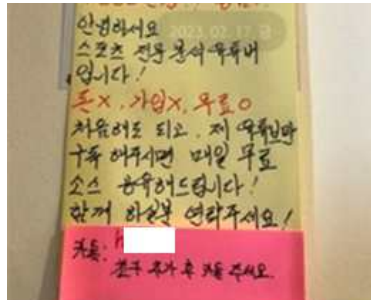 안녕하세요
2023. 02. 17 금
스포츠 전문 분석 유튜버
입니다!
돈X, 가입X, 무료O
처음이어도 되고, 제 유튜브만
구독 해주시면 매일 무료
소스 공유해드립니다!
함께 하실분 연락주세요!
카톡:
친구 추가 후 카톡 주세요.